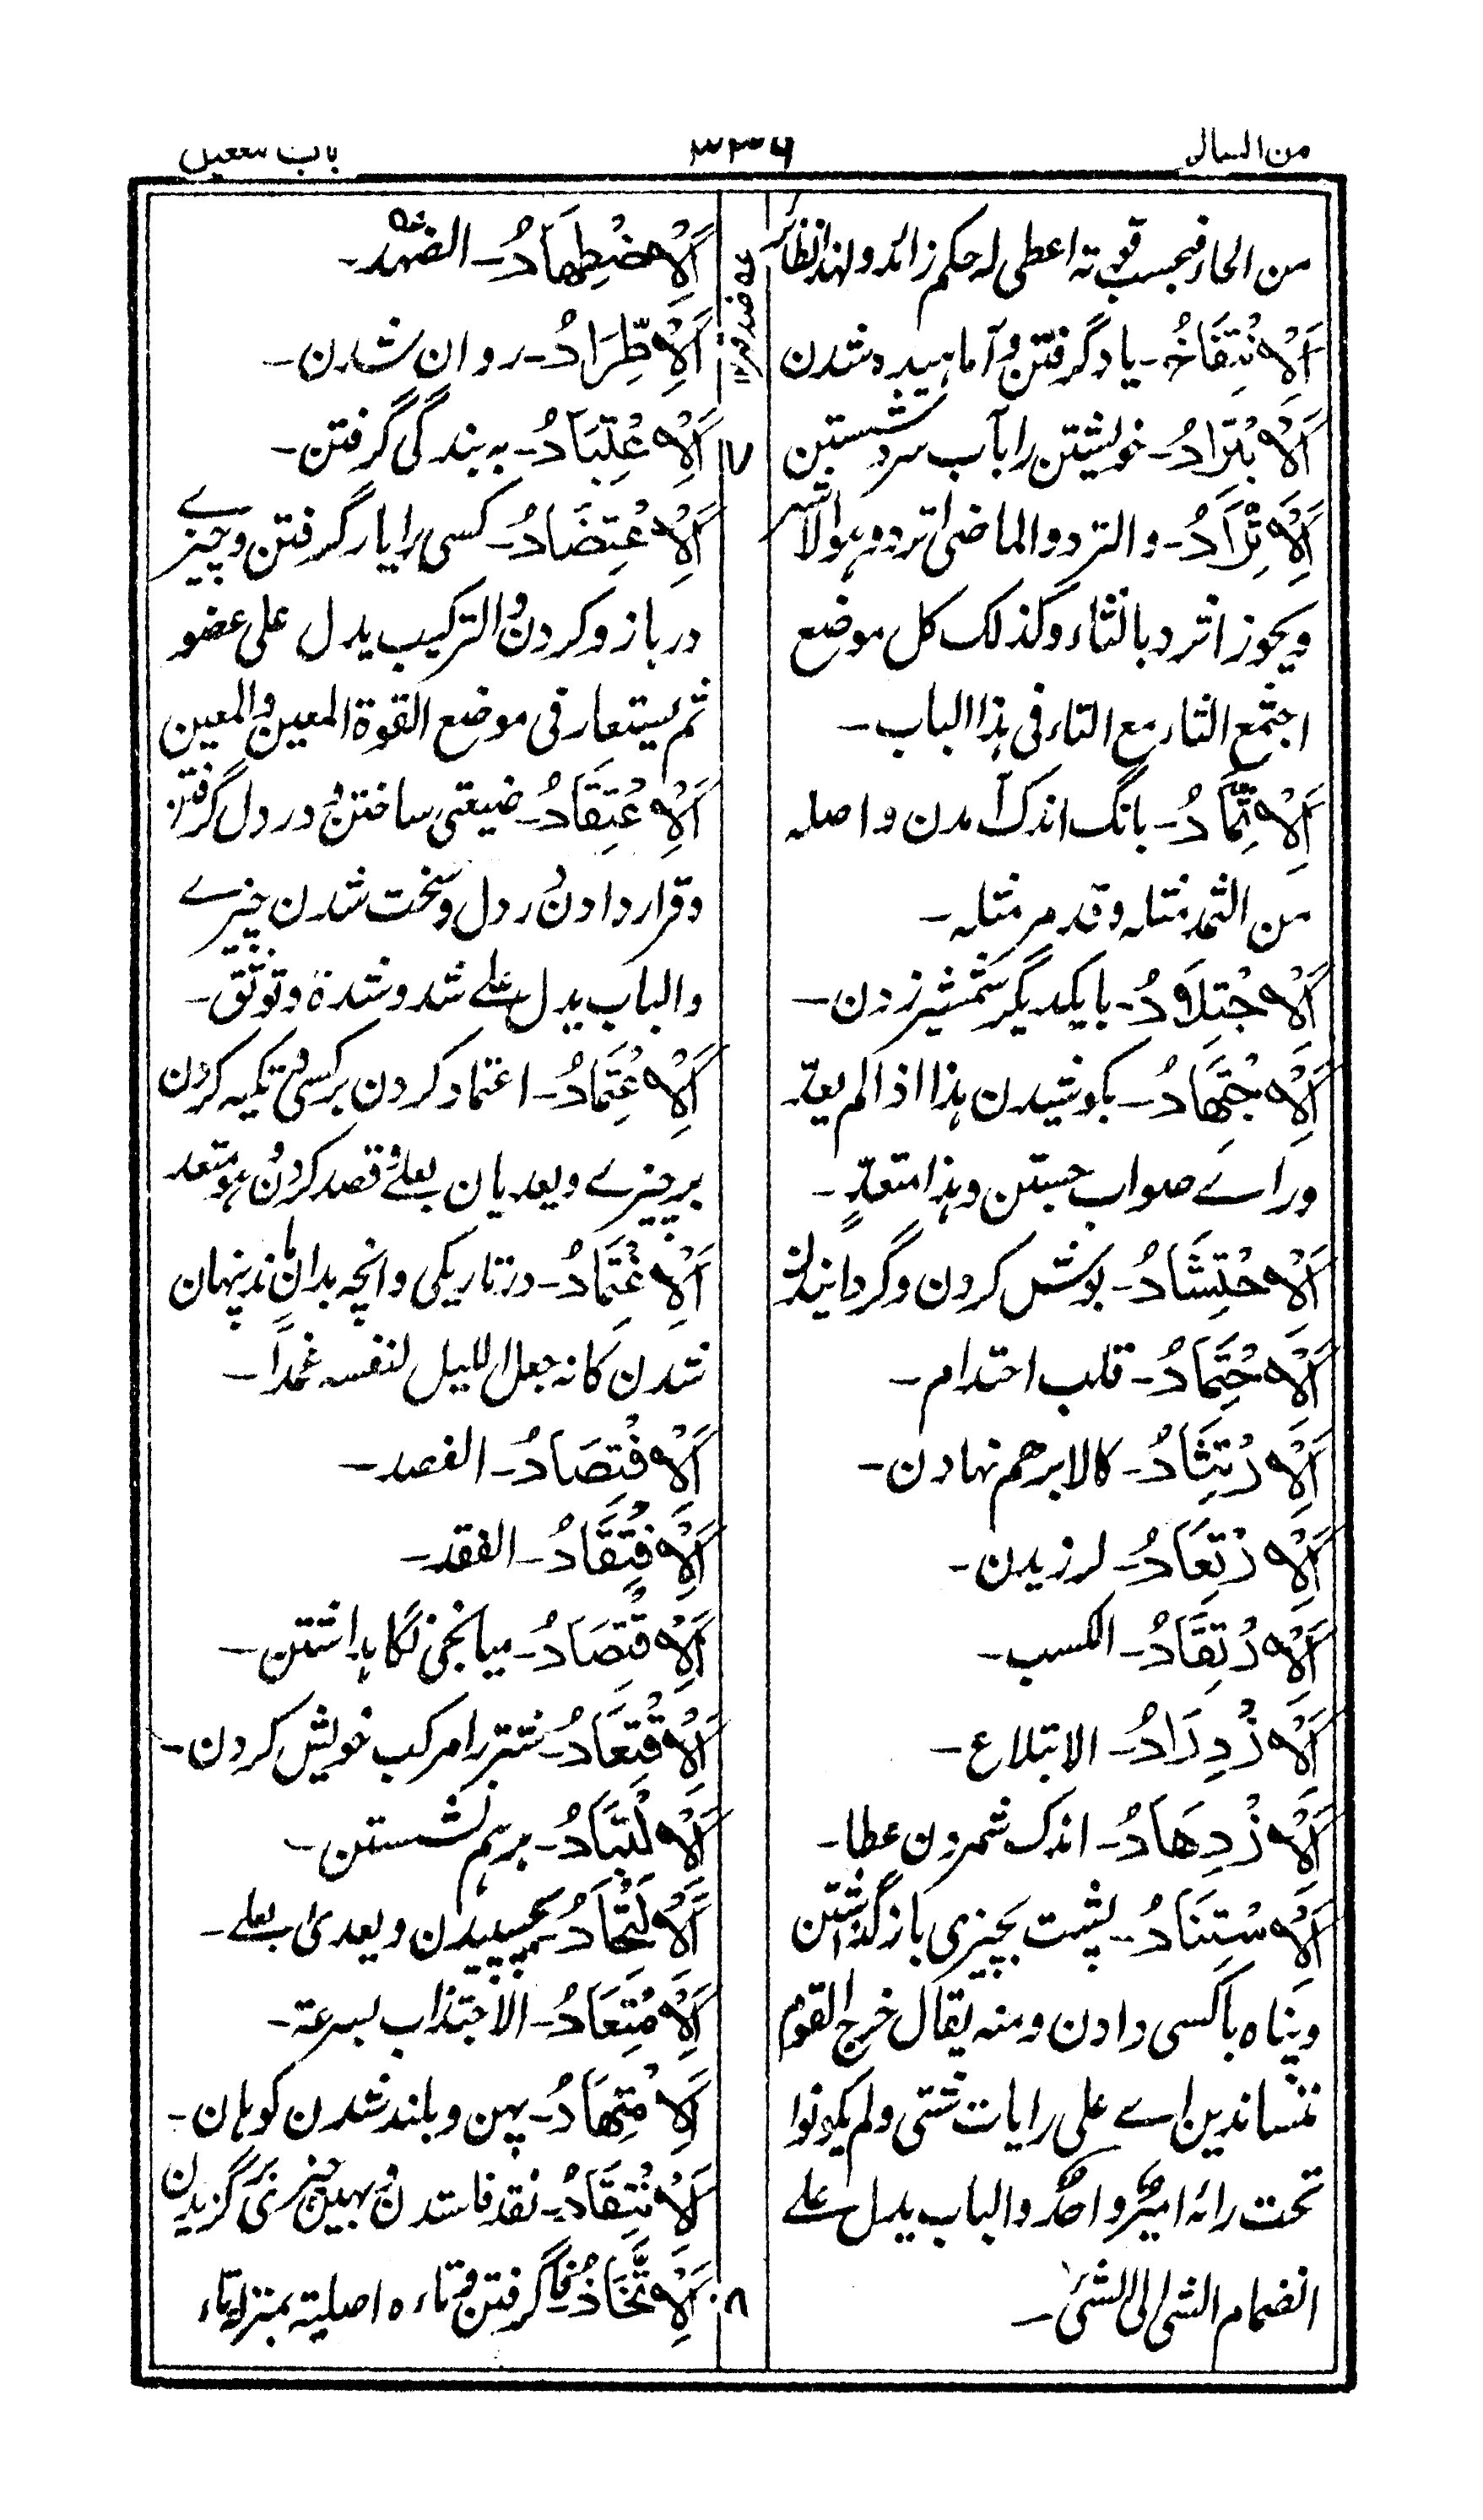 من السالم
۳۳۶
باب
من الحاء فبحسب قوته اعطی له حکم زائد ولهذا نظائر
اَلْاِنْتِفَاخُ۔ یاد گرفتن و آماهیده شدن
اَلْاِبْتِرَادُ۔ خویشتن را بآب سرد شستن
اَلْاِتِّرَادُ۔ والترد والماضی اترد وهو الاشهر
ویجوز اثرد بالثاء وکذلک کل موضع
اجتمع الثاء مع التاء فی هذا الباب۔
اَلْاِتِّمَادُ۔ بانگ اندک آمدن واصله
من الثمد مثله وقد مر مثله۔
اَلْاِجْتِلَادُ۔ بایکدیگر شمشیر زدن۔
اَلْاِجْتِهَادُ۔ بکوشیدن هذا اذا لم یعدّ
وراے صواب جستن وهذا متعدٍّ۔
اَلْاِحْتِشَادُ۔ کوشش کردن وگرد آیندن
اَلْاِحْتِمَادُ۔ قلب احتدام۔
اَلْاِرْتِثَادُ۔ کالا برهم نهادن۔
اَلْاِرْتِعَادُ۔ لرزیدن۔
اَلْاِرْتِقَادُ۔ الکسب۔
اَلْاِزْدِرَادُ۔ الابتلاع۔
اَلْاِزْدِهَادُ۔ اندک شمردن عطا۔
اَلْاِسْتِنَادُ۔ پشت بچیزی بازگذاشتن
وپناه باکسی دادن ومنه یقال خرج القوم
متساندین اے علی رایات شتی ولم یکونوا
تحت رائة امیر واحد والباب یدل علے
انضمام الشی الی الشیٔ۔
اَلْاِضْطِهَادُ۔ الضهد۔
اَلْاِطِّرَادُ۔ روان شدن۔
۷ اَلْاِعْتِبَادُ۔ به بندگی گرفتن۔
اَلْاِعْتِضَادُ۔ کسی را یار گرفتن وچیزے
در بازو کردن والترکیب یدل علی عضو
ثم یستعار فی موضع القوة المعین والمعین
اَلْاِعْتِقَادُ۔ ضیعتی ساختن و در دل گرفتن
وقرار دادن دل وسخت شدن چیزے
والباب یدل علے شد وشدة وتوثق۔
اَلْاِعْتِمَادُ۔ اعتماد کردن بر کسی و تکیه کردن
بر چیزے ویعدیان بعلے وقصد کردن وهو متعد
اَلْاِغْتِمَادُ۔ در تاریکی وانچه بدان ماند پنهان
شدن کانه جعل اللیل لنفسه غمدًا۔
اَلْاِفْتِصَادُ۔ الفصد۔
اَلْاِفْتِقَادُ۔ الفقد۔
اَلْاِقْتِصَادُ۔ میانجی نگاهداشتن۔
اَلْاِقْتِعَادُ۔ شتر را مرکب خویش کردن۔
اَلْاِلْتِبَادُ۔ برهم نشستن۔
اَلْاِلْتِحَادُ۔ بچسپیدن ویعدی بعلے۔
اَلْاِمْتِعَادُ۔ الاجتذاب بسرعة۔
اَلْاِمْتِهَادُ۔ پهن وبلند شدن کوهان۔
اَلْاِنْتِقَادُ۔ نقد فاستدن و بهین چیزی گزیدن
۸ اَلْاِتِّخَاذُ۔ فاگرفتن وتاءه اصلیة بمنزلة تاء